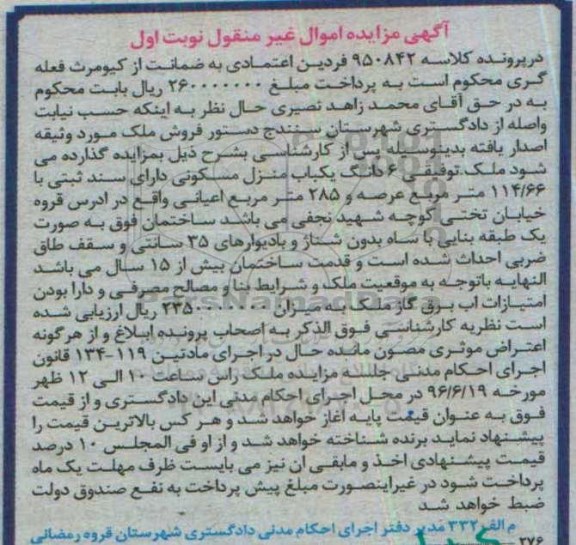 آگهی مزایده اموال غیر منقول نوبت اول
درپرونده کلاسه ۹۵۰۸۴۲ فردین اعتمادی به ضمانت از کیومرث فعله
گری محکوم است به پرداخت مبلغ ۲۶۰۰۰۰۰۰۰۰ ریال بابت محکوم
به در حق آقای محمد زاهد نصیری حال نظر به اینکه حسب نیابت
واصله از دادگستری شهرستان سنندج دستور فروش ملک مورد وثیقه
اصدار یافته بدینوسیله پس از کارشناسی بشرح ذیل بمزایده گذارده می
شود ملک توقیفی ۶ دانگ یکباب منزل مسکونی دارای سند ثبتی با
۱۱۴/۶۶ متر مربع عرصه و ۲۸۵ متر مربع اعیانی واقع در ادرس قروه
خیابان تختی کوچه شهید نجفی می باشد ساختمان فوق به صورت
یک طبقه بنایی با بدون شناژ و بادیوارهای ۳۵ سانتی و سقف طاق
ضربی احداث شده است و قدمت ساختمان بیش از ۱۵ سال می باشد
النهایه باتوجه به موقعیت ملک و شرایط بنا و مصالح مصرفی و دارا بودن
امتیازات اب برق گاز ملک به میزان ریال ارزیابی شده
است نظریه کارشناسی فوق الذکر به اصحاب پرونده ابلاغ و از هرگونه
اعتراض موثری مصون مانده حال در اجرای مادتین ۱۱۹-۱۳۴ قانون
اجرای احکام مدنی جلسه مزایده ملک راس ساعت ۱۰ الی ۱۲ ظهر
مورخه ۹۶/۶/۱۹ در محل اجرای احکام مدنی این دادگستری و از قیمت
فوق به عنوان قیمت پایه آغاز خواهد شد و هر کس بالاترین قیمت را
پیشنهاد نماید برنده شناخته خواهد شد و از او فی المجلس ۱۰ درصد
قیمت پیشنهادی اخذ و مابقی ان نیز می بایست ظرف مهلت یک ماه
پرداخت شود در غیراینصورت مبلغ پیش پرداخت به نفع صندوق دولت
ضبط خواهد شد
م الف ۳۳۲ مدیر دفتر اجرای احکام مدنی دادگستری شهرستان قروه رمضانی
۲۷۶